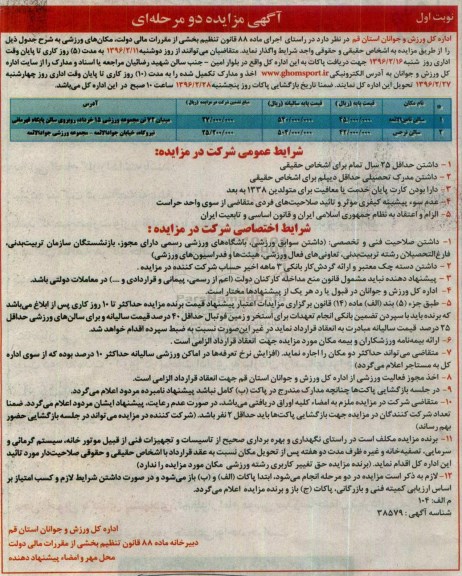 نوبت اول
آگهی مزایده دو مرحله‌ای
اداره کل ورزش و جوانان استان قم در نظر دارد در راستای اجرای ماده ۸۸ قانون تنظیم بخشی از مقررات مالی دولت، مکان‌های ورزشی به شرح جدول ذیل
را از طریق مزایده به اشخاص حقیقی و حقوقی واجد شرایط واگذار نماید. متقاضیان می‌توانند از روز دوشنبه ۱۳۹۶/۲/۱۱ به مدت (۵) روز کاری تا پایان وقت
اداری روز شنبه ۱۳۹۶/۲/۱۶ جهت دریافت پاکات به این اداره کل واقع در بلوار امین - جنب سالن شهید رضائیان مراجعه یا اسناد و مدارک را از سایت اداره
کل ورزش و جوانان به آدرس الکترونیکی www.ghomsport.ir اخذ و مدارک تکمیل شده را به مدت (۱۰) روز کاری تا پایان وقت اداری روز چهارشنبه
۱۳۹۶/۲/۲۷ تحویل این اداره کل نمایند. ضمنا تاریخ بازگشایی پاکات روز پنجشنبه ۱۳۹۶/۲/۲۸ ساعت ۱۰ صبح در این اداره کل می‌باشد.
نام مکان قیمت پایه (ریال) قیمت پایه سالیانه (ریال) مبلغ تضمین شرکت در مزایده (ریال) آدرس
۱
۲ سالن نرجس
شرایط عمومی شرکت در مزایده:
۱- داشتن حداقل ۲۵ سال تمام برای اشخاص حقیقی
۲- داشتن مدرک تحصیلی حداقل دیپلم برای اشخاص حقیقی
۳- دارا بودن کارت پایان خدمت یا معافیت برای متولدین ۱۳۳۸ به بعد
۴- عدم سوء پیشینه کیفری مؤثر و تائید صلاحیت‌های فردی متقاضی از سوی واحد حراست
۵- الزام و اعتقاد به نظام جمهوری اسلامی ایران و قانون اساسی و تابعیت ایران
شرایط اختصاصی شرکت در مزایده :
۱- داشتن صلاحیت فنی و تخصصی: (داشتن سوابق ورزشی، باشگاه‌های ورزشی رسمی دارای مجوز، بازنشستگان سازمان تربیت‌بدنی،
فارغ‌التحصیلان رشته تربیت‌بدنی، تعاونی‌های فعال ورزشی، هیئت‌ها و فدراسیون‌های ورزشی)
۲- داشتن دسته چک معتبر و ارائه گردش کار بانکی ۳ ماهه اخیر حساب شرکت کننده در مزایده .
۳- پیشنهاد دهنده نباید مشمول قانون منع مداخله کارکنان دولت (اعم از رسمی، پیمانی و قراردادی و ...) در معاملات دولتی باشد.
۴- اداره کل ورزش و جوانان در قبول یا رد هر یک از پیشنهادها مختار است.
۵- طبق جزء (۵) بند (الف) ماده (۱۴) قانون برگزاری مزایدات اعتبار پیشنهاد قیمت برنده مزایده حداکثر تا ۱۰ روز کاری پس از ابلاغ می‌باشد
که برنده باید با سپردن تضمین بانکی انجام تعهدات برای استخر و زمین فوتبال حداقل ۴۰ درصد قیمت سالیانه و برای سالن‌های ورزشی حداقل
۲۵ درصد قیمت سالیانه مبادرت به انعقاد قرارداد نماید در غیر این صورت نسبت به ضبط سپرده اقدام خواهد شد.
۶- ارائه بیمه‌نامه ورزشکاران و بیمه مکان مورد مزایده جهت انعقاد قرارداد الزامی است .
۷- متقاضی می‌تواند حداکثر دو مکان را اجاره نماید. (افزایش نرخ تعرفه‌ها در اماکن ورزشی سالیانه حداکثر ۱۰ درصد بوده که از سوی اداره
کل به مستاجر اعلام می‌گردد)
۸- اخذ مجوز فعالیت ورزشی از اداره کل ورزش و جوانان استان قم جهت انعقاد قرارداد الزامی است.
۹- در جلسه بازگشایی پاکت‌ها چنانچه مدارک مندرج در پاکت (ب) کامل نباشد پیشنهاد نامبرده مردود اعلام می‌گردد.
۱۰- متقاضی شرکت در مزایده ملزم به امضاء کلیه اوراق دریافتی می‌باشد، در صورت عدم رعایت، پیشنهاد ایشان مردود اعلام می‌گردد. ضمنا
تعداد شرکت کنندگان در مزایده جهت بازگشایی پاکت‌ها باید حداقل ۲ نفر باشد. (شرکت کننده در مزایده می‌تواند در جلسه بازگشایی حضور
بهم رساند)
۱۱- برنده مزایده مکلف است در راستای نگهداری و بهره برداری صحیح از تاسیسات و تجهیزات فنی از قبیل موتور خانه، سیستم گرمائی و
سرمایی، تصفیه‌خانه و غیره ظرف مدت دو هفته پس از تحویل مکان نسبت به عقد قرارداد با اشخاص حقیقی و حقوقی صلاحیت‌دار مورد تائید
این اداره کل اقدام نماید. (برنده مزایده حق تغییر کاربری رشته ورزشی مکان مورد مزایده را ندارد)
۱۲- لازم به ذکر است مزایده در دو مرحله انجام می‌شود، ابتدا پاکات (الف) و (ب) باز می‌شود و در صورت داشتن شرایط لازم و کسب امتیاز بر
اساس ارزیابی کمیته فنی و بازرگانی، پاکات (ج) باز و برنده مزایده اعلام می‌گردد.
م الف: ۱۰۴
شناسه آگهی : ۳۸۵۷۹
اداره کل ورزش و جوانان استان قم
دبیرخانه ماده ۸۸ قانون تنظیم بخشی از مقررات مالی دولت
محل مهر و امضاء پیشنهاد دهنده